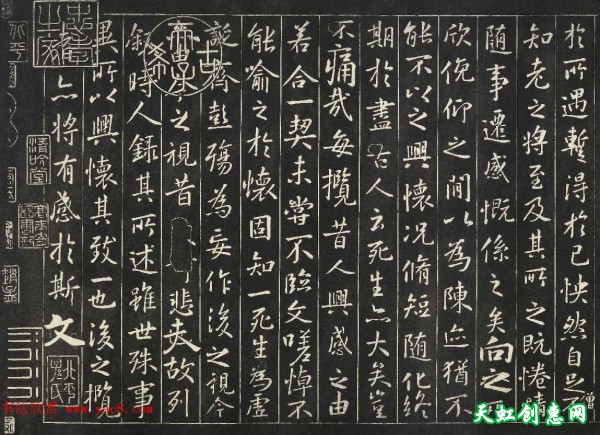 於所遇蹔得於己怏然自足不
僧
知老之將至及其所之既惓情
隨事遷感慨係之矣向之所
欣俛仰之間以為陳迹猶不
能不以之興懷況脩短隨化終
期於盡古人云死生亦大矣豈
不痛哉每攬昔人興感之由
若合一契未嘗不臨文嗟悼不
能喻之於懷固知一死生為虛
誕齊彭殤為妄作後之視今
之視昔悲夫故列
敘時人錄其所述雖世殊事
異所以興懷其致一也後之攬
亦將有感於斯文
希古
清吟堂
书法欣赏 www.yac8.com
天虹创意网